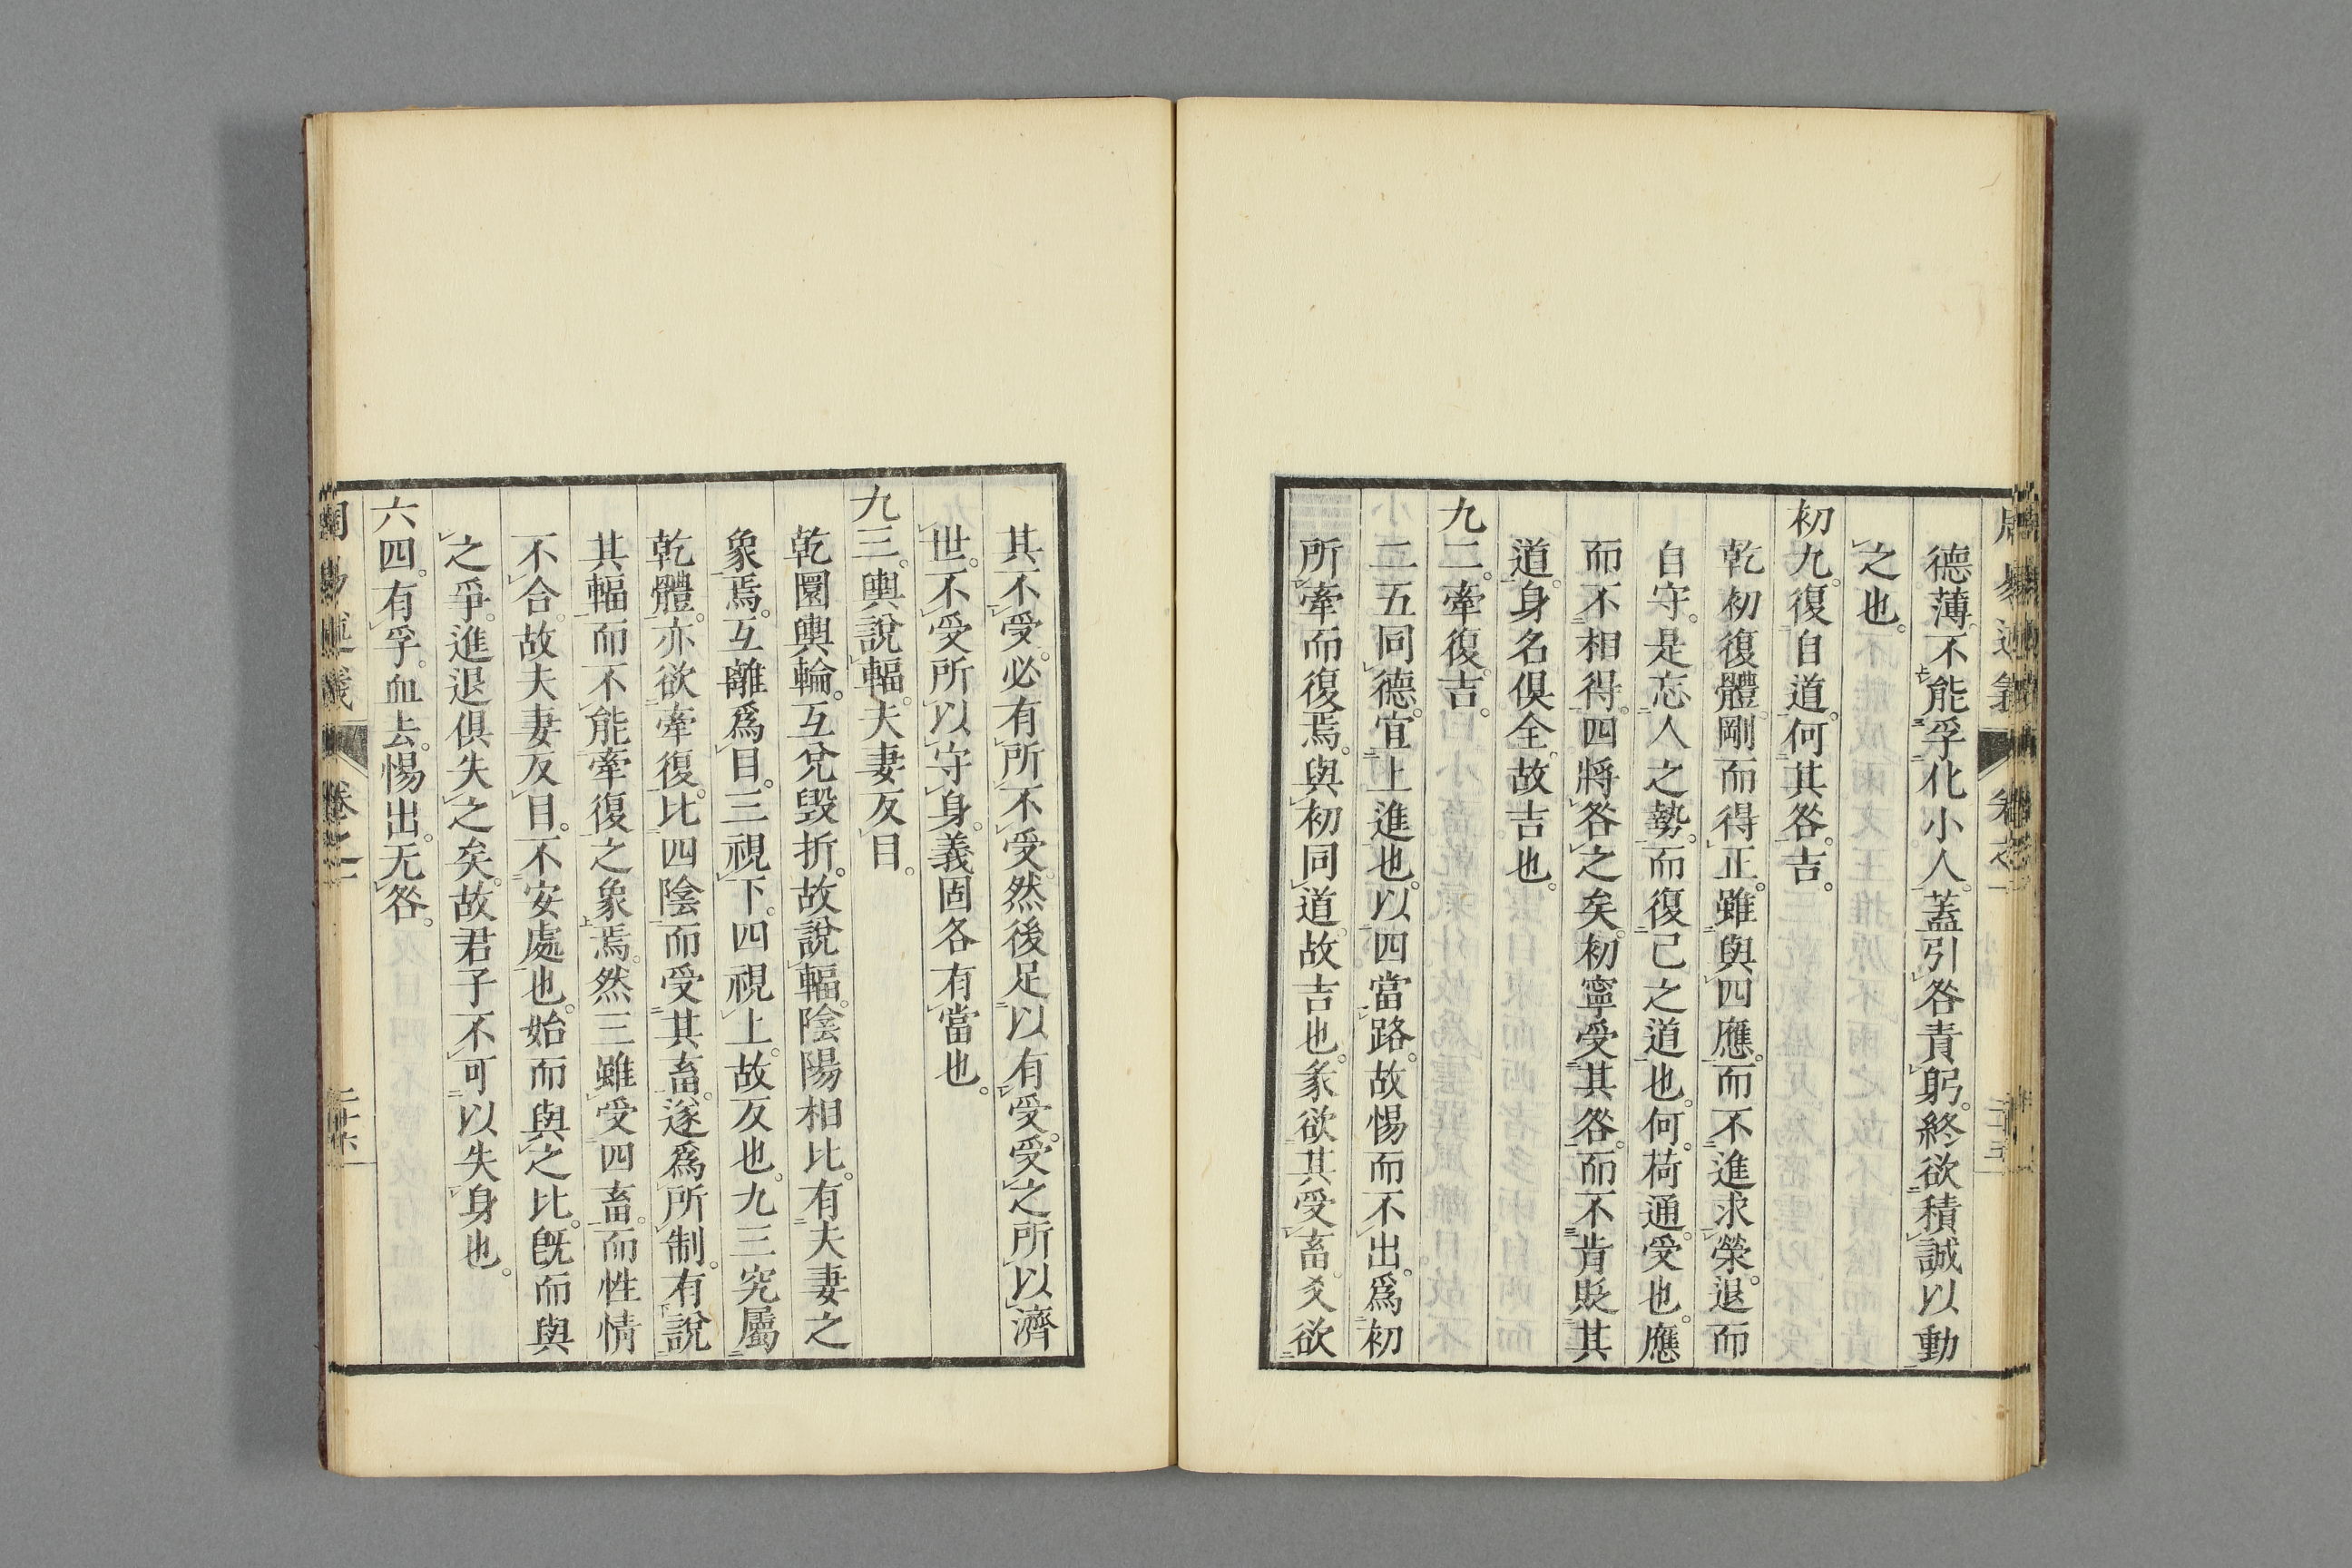 德薄。不能孚化小人。蓋引咎責躬。終欲積誠以動
之也。
初九。復自道。何其咎。吉。
乾初復體。剛而得正。雖與四應。而不進求榮。退而
自守。是忘人之勢。而復己之道也。何。荷通。受也。應
而不相得。四將咎之矣。初寧受其咎。而不肯貶其
道。身名俱全。故吉也。
九二。牽復。吉。
二五同德。宜上進也。以四當路。故惕而不出。爲初
所牽而復焉。與初同道。故吉也。彖欲其受畜。爻欲
其不受。必有所不受。然後足以有受。受之所以濟
世。不受所以守身。義固各有當也。
九三。輿說輻。夫妻反目。
乾圜輿輪。互兌毀折。故說輻。陰陽相比。有夫妻之
象焉。互離爲目。三視下。四視上。故反也。九三究屬
乾體。亦欲牽復。比四陰而受其畜。遂爲所制。有說
其輻而不能牽復之象焉。然三雖受四畜。而性情
不合。故夫妻反目。不安處也。始而與之比。旣而與
之爭。進退俱失之矣。故君子不可以失身也。
六四。有孚。血去。惕出。无咎。
卷之一